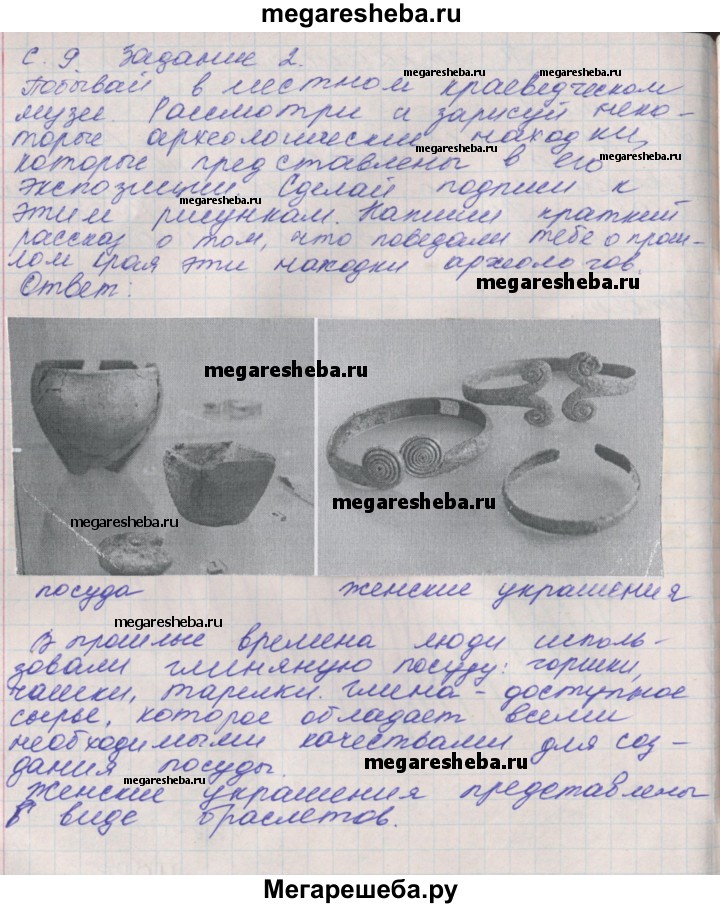 megaresheba.ru
с. 9 Задание 2.
Побывай в местном краеведческом
megaresheba.ru
музее. Рассмотри и зарисуй неко-
megaresheba.ru
торые археологические находки,
megaresheba.ru
которые представлены в его
экспозиции. Сделай подписи к
этим рисункам. Напиши краткий
рассказ о том, что поведали тебе о прош-
лом края эти находки археологов.
Ответ:
megaresheba.ru
megaresheba.ru
megaresheba.ru
megaresheba.ru
посуда женские украшения
megaresheba.ru
В прошлые времена люди исполь-
зовали глиняную посуду: горшки,
чашки, тарелки. Глина - доступное
сырье, которое обладает всеми
необходимыми качествами для соз-
дания посуды.
megaresheba.ru
megaresheba.ru
Женские украшения представлены
в виде браслетов.
megaresheba.ru
megaresheba.ru
Мегарешеба.ру